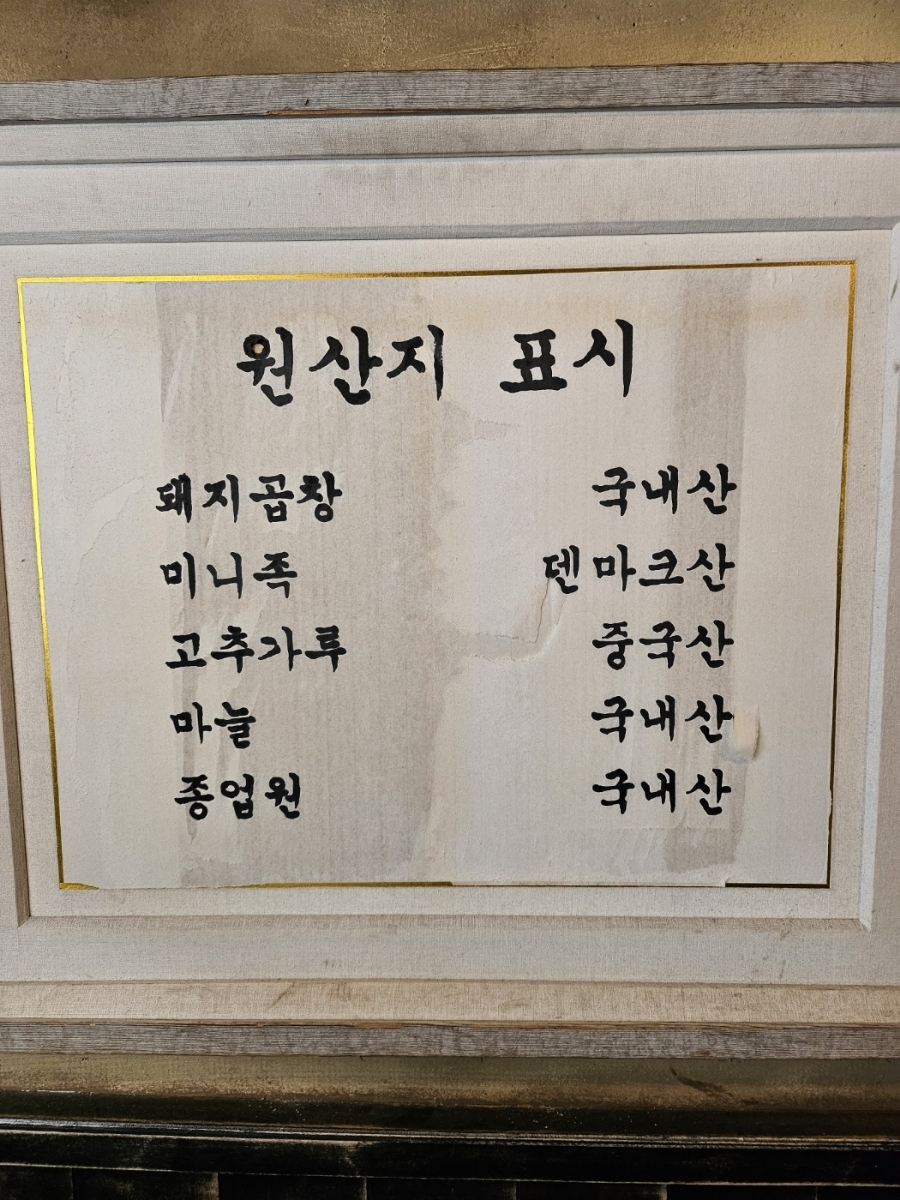 원산지 표시
돼지곱창 국내산
미니족 덴마크산
고추가루 중국산
마늘 국내산
종업원 국내산